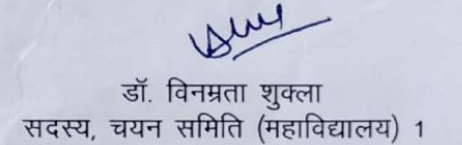 डॉ. विनम्रता शुक्ला
सदस्य, चयन समिति (महाविद्यालय) 1